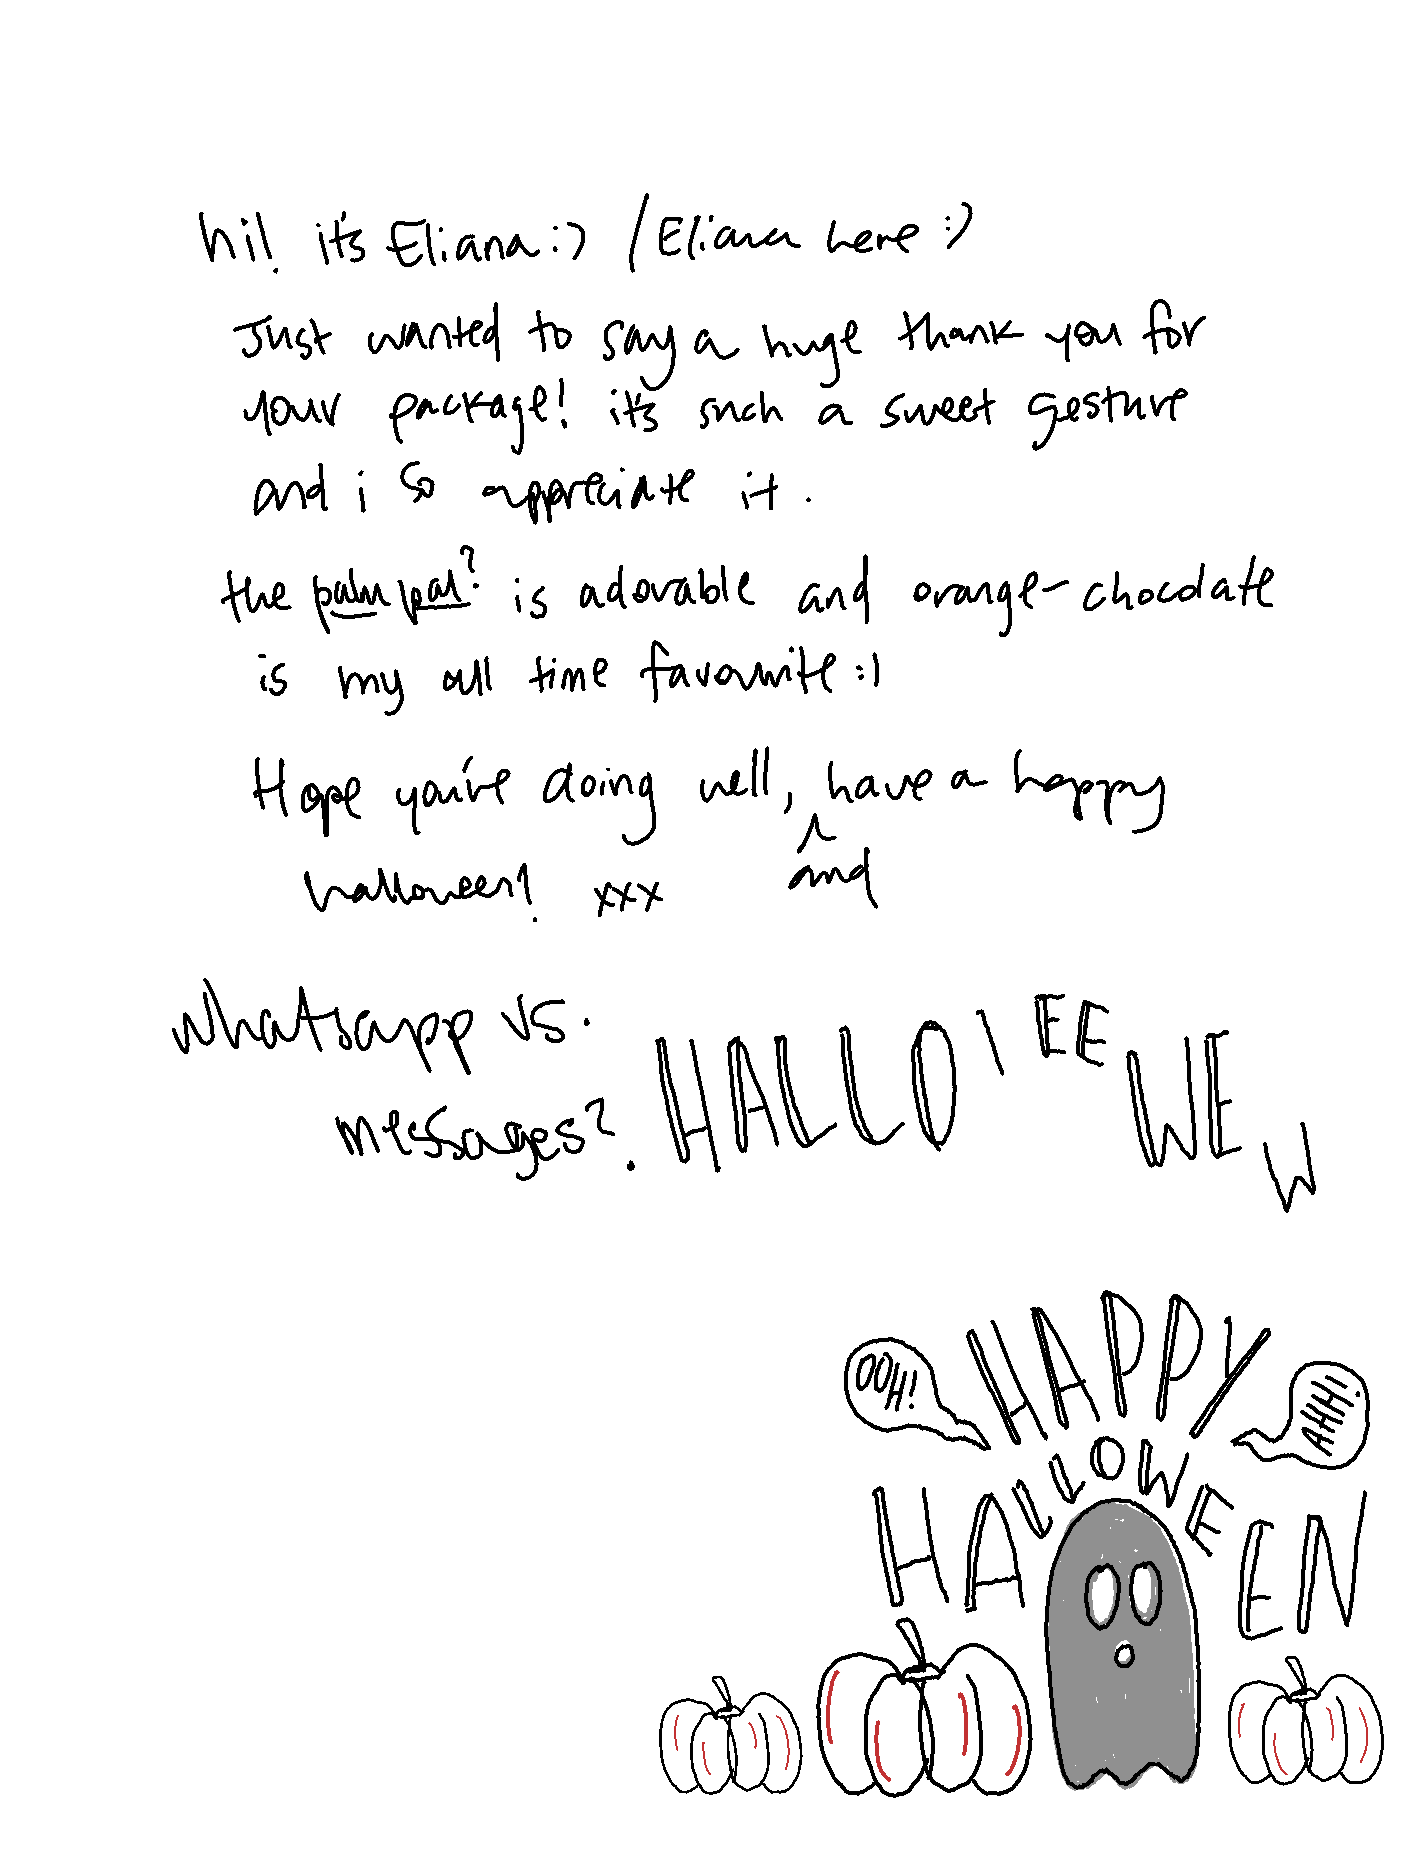 hi! it's Eliana :) / Eliana here :)
Just wanted to say a huge thank you for
your package! it's such a sweet gesture
and i so appreciate it.
the palm pal? is adorable and orange-chocolate
is my all time favourite :)
Hope you're doing well, have a happy
and
halloween! xxx
whatsapp vs.
messages?
HALLO \ EE WE W
OOH!
HAPPY
AHHH!
HALLOWEEN